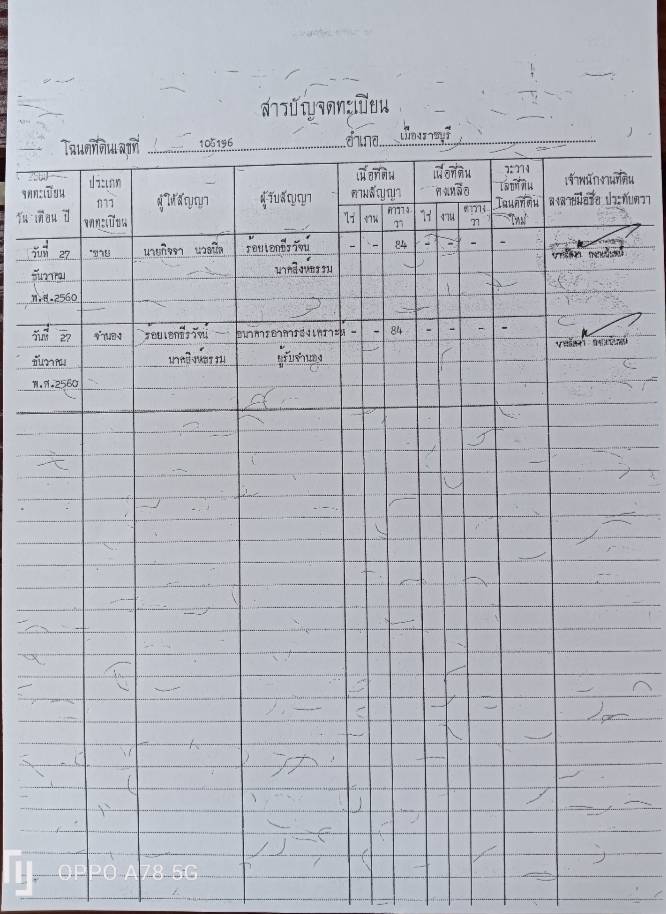 สารบัญจดทะเบียน
โฉนดที่ดินเลขที่ 105196 อำเภอ เมืองราชบุรี
จดทะเบียน วัน เดือน ปี
ประเภท การ จดทะเบียน
ผู้ให้สัญญา
ผู้รับสัญญา
เนื้อที่ดิน ตามสัญญา
ไร่ งาน ตาราง วา
เนื้อที่ดิน คงเหลือ
ไร่ งาน ตาราง วา
ระวาง เลขที่ดิน โฉนดที่ดิน ใหม่
เจ้าพนักงานที่ดิน ลงลายมือชื่อ ประทับตรา
วันที่ 27 ขาย นายกิจจา นวลนิล ร้อยเอกธีรวัจน์ - - 84 - - - -
ธันวาคม นาคสิงห์ธรรม
พ.ศ.2560
วันที่ 27 จำนอง ร้อยเอกธีรวัจน์ ธนาคารอาคารสงเคราะห์ - - 84 - - - -
ธันวาคม นาคสิงห์ธรรม ผู้รับจำนอง
พ.ศ.2560
OPPO A78 5G